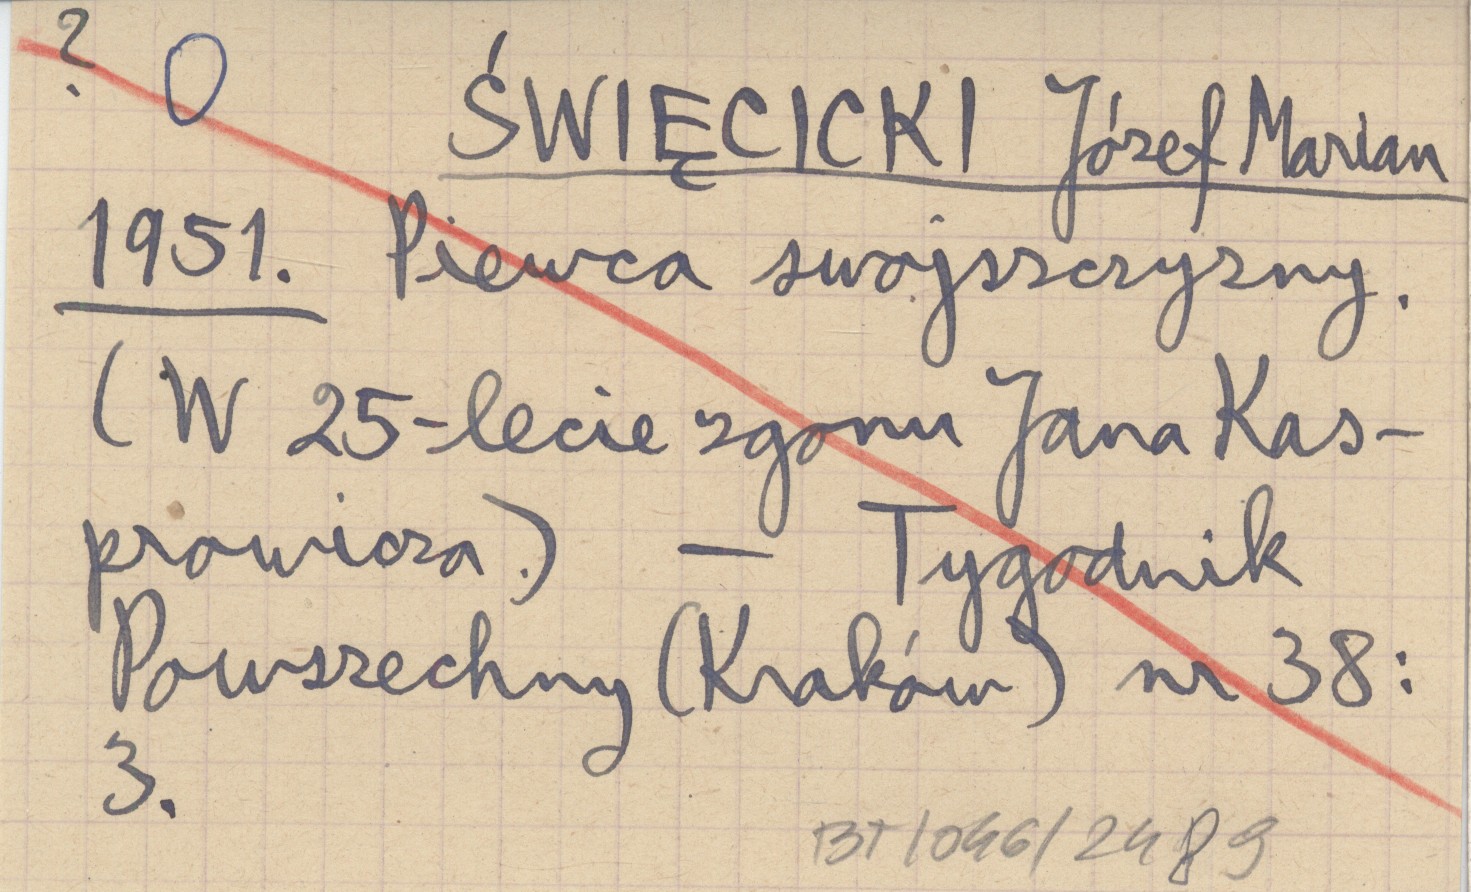 ? O
ŚWIĘCICKI Józef Marian
1951. Piewca swojszczyzny.
(W 25-lecie zgonu Jana Kas-
prowicza.) — Tygodnik
Powszechny (Kraków) nr 38:
3.
BT/046/2489